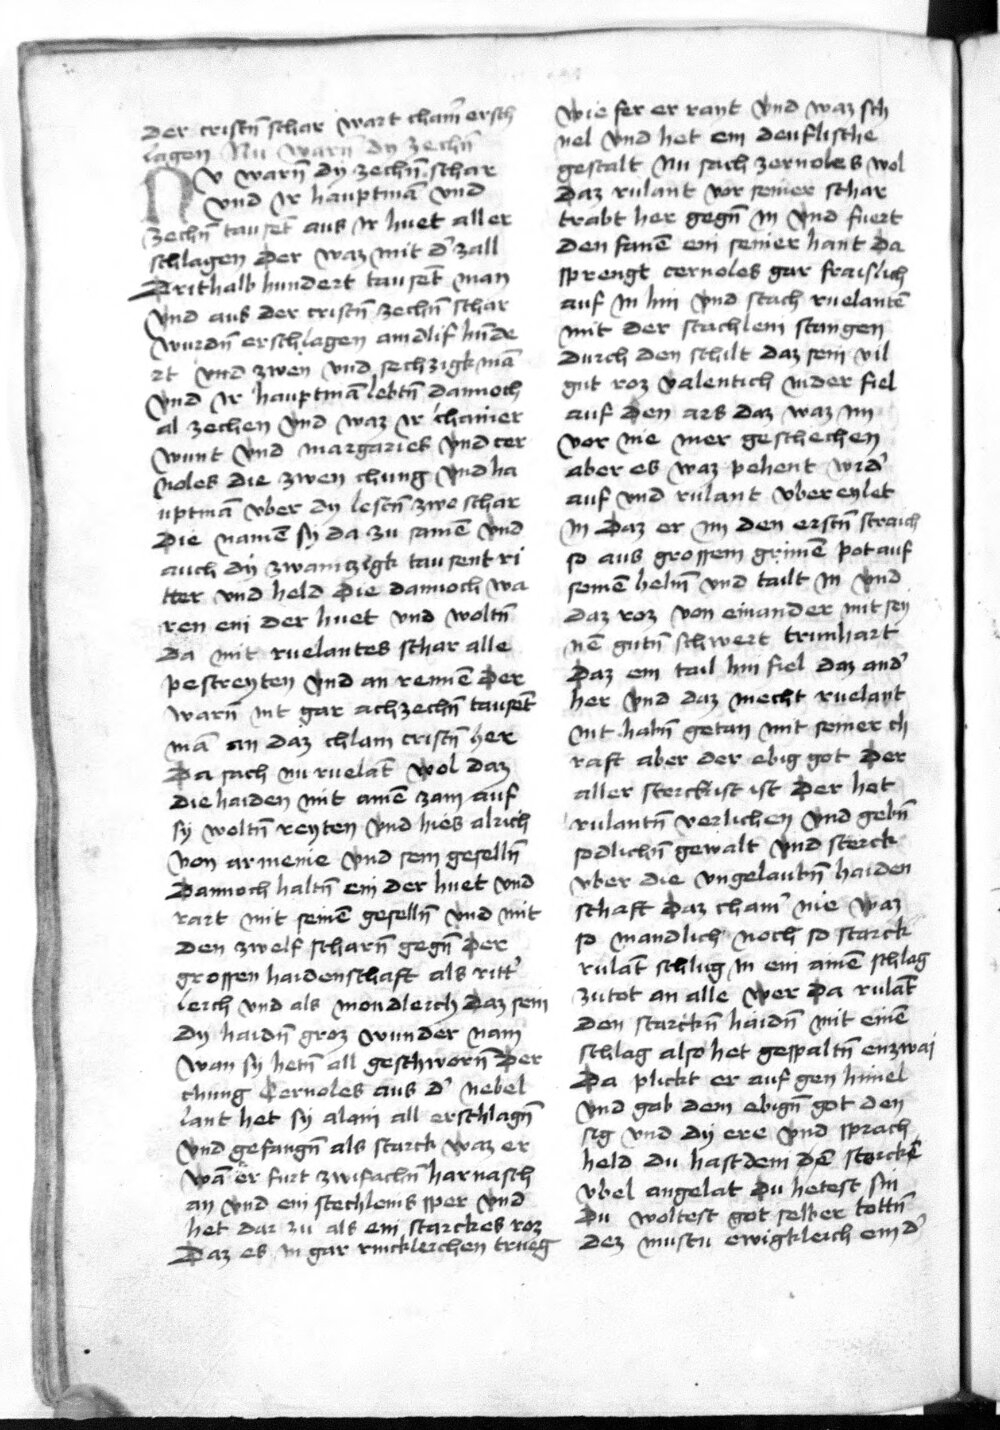 der cristn̄ schar wart cham̄ ersch
lagen Nu warn̄ dy zechn̄
Nv warn̄ dy zechn̄ schar
vnd Ir hauptmā vnd
zechn̄ tausēt aus Ir huet all er
schlagen Der waz mit d' zall
Drithalb hundert tausēt man
vnd aus der cristn̄ zechn̄ schar
wurdn̄ erschlagen aindlif hūde
rt vnd zwen vnd sechzigk mā
vnd Ir hauptmā lebtn̄ dannoch
al zechen vnd waz Ir chainer
wunt vnd margaries vnd cer
noles die zwen chung vnd ha
uptmā vber dy lestn̄ zwe schar
Die namē sy da zu samē vnd
auch dy zwainczigk tausent ri
tter vnd held Die dannoch wa
ren ein der huet vnd woltn̄
Da mit ruelantes schar alle
pestreyten vnd an rennē Der
warn̄ nit gar achzechn̄ tausēt
mā an daz chlain cristn̄ her
Da sach nu ruelāt wol daz
die haiden mit ainē zam auf
sy woltn̄ reyten vnd hies alrich
von armenie vnd sein geselln̄
Dannoch haltn̄ ein der huet vnd
rart mit seinē geselln̄ vnd mit
den zwelf scharn̄ gegn̄ Der
grossen haidenschaft als ritt'
lerch vnd als mondlerch Daz sein
dy haidn̄ groz wunder nam
wan sy hetn̄ all geschworn̄ Der
chung Cernoles aus d' nebel
lant het sy alain all erschlagn̄
vnd gefangn̄ als starck waz er
wā er furt zwifachn̄ harnasch
an vnd ein stechleins sper vnd
het dar zu als ein starckes roz
Daz es in gar rincklerchen trueg
wie fer er rant vnd waz sch
nel vnd het ein deuflische
gestalt Nu sach zernoles wol
Daz rulant vor seiner schar
trabt her gegn̄ in vnd fuert
den fanē ein seiner hant Da
sprengt cernoles gar fraislich
auf in hin vnd stach ruelantē
mit der stachlein stangen
durch den schilt daz sein vil
gut roz valentich nider fiel
auf den ars daz waz im
vor nie mer geschechen
aber es waz pehent wid'
auf vnd rulant vbereylet
in Daz er im den erstn̄ straich
so aus grossem grimē pot auf
seinē helm̄ vnd tailt in vnd
daz roz von einander mit sey
nē gutn̄ schwert trunhart
Daz ein tail hin fiel daz and'
her vnd daz mecht ruelant
nit habn̄ getan mit seiner ch
raft aber der ebig got Der
aller sterckist ist Der het
rulantn̄ verlichen vnd gebn̄
sodlichn̄ gewalt vnd sterck
vber die vngelaubn̄ haiden
schaft Daz cham' nie waz
so mandlich noch so starck
rulāt schlug in ein ainē schlag
zu tot an alle wer Da rulāt
den starckn̄ haidn̄ mit einē
schlag also het gespaltn̄ enzwai
Da plickt er auf gen himel
vnd gab dem ebign̄ got den
sig vnd dy ere vnd sprach
held du hast dein dē sterckē
vbel angelat Du hetest sin
Du woltest got selber tottn̄
dez mustu ewigklerch ein d'